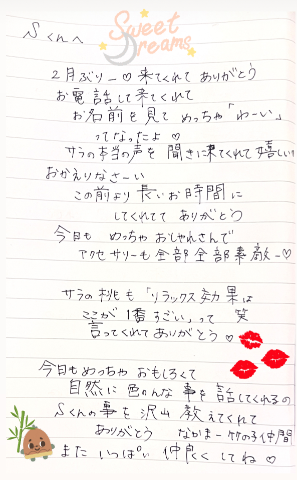 Sくんへ
Sweet
Dreams
2月ぶりー♡来てくれて ありがとう
お電話して来てくれて
お名前を見て めっちゃ「わーい」
ってなったよ♡
サラの本当の声を 聞きに来てくれて嬉しい!
おかえりなさーい
この前より 長いお時間に
してくれてて ありがとう
今日も めっちゃ おしゃれさんで
アクセサリーも全部全部素敵ー♡
サラの桃も「リラックス効果は
ここが 1番 すごい」って 笑
言ってくれて ありがとう♡
今日もめっちゃ おもしろくて
自然に 色んな 事を 話してくれるの
Sくんの事を 沢山 教えてくれて
ありがとう なかまー 竹の子仲間
また いっぱい 仲良くしてね♡